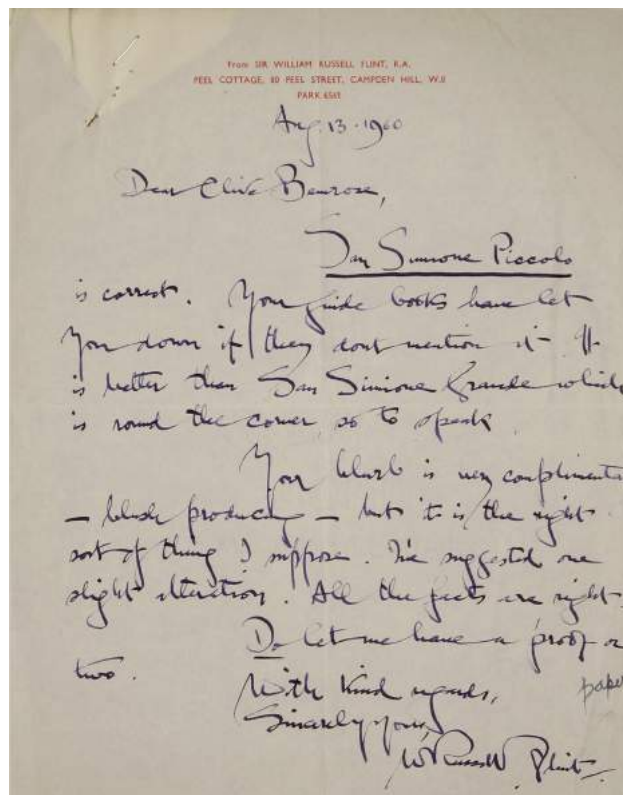 From SIR WILLIAM RUSSELL FLINT, R.A.
PEEL COTTAGE, 80 PEEL STREET, CAMPDEN HILL, W.8
PARK 6569
Aug. 13 - 1960
Dear Clive Bemrose,
San Simione Piccolo
is correct. Your guide books have let
you down if they dont mention it. It
is better than San Simione Grande which
is round the corner, so to speak.
Your blurb is very compliment
— blush producing — but it is the right
sort of thing I suppose. I've suggested one
slight alteration. All the facts are right.
Do let me have a proof or
two.
With kind regards,
paper
Sincerely yours,
W Russell Flint